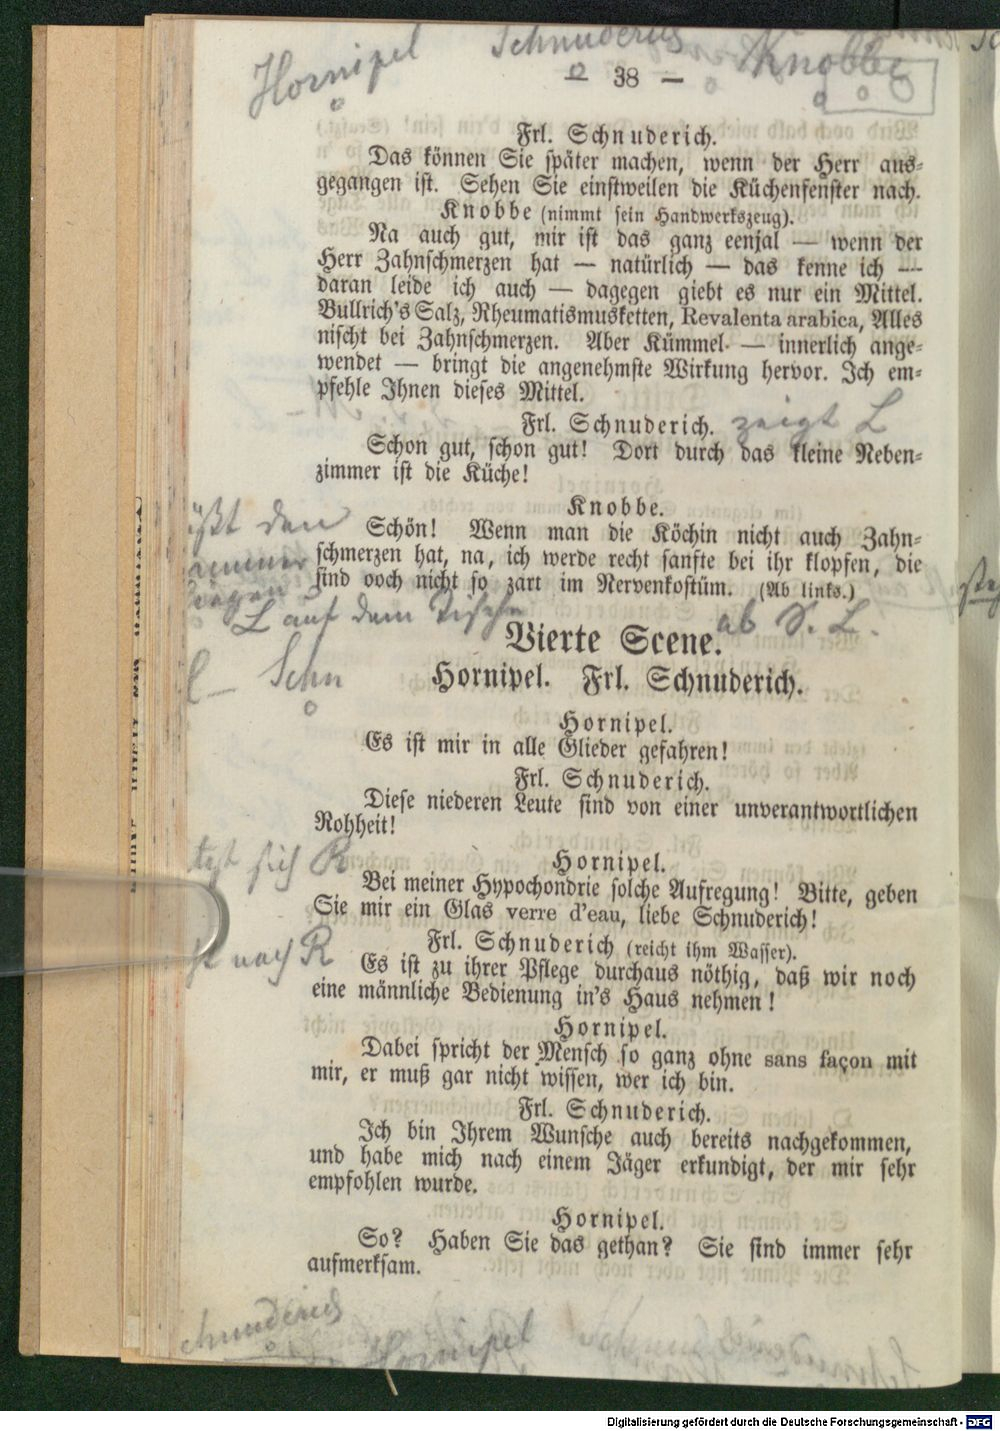 Hornipel Schnuderich Knobbe
— 38 —
Frl. Schnuderich.
Das können Sie später machen, wenn der Herr aus-
gegangen ist. Sehen Sie einstweilen die Küchenfenster nach.
Knobbe (nimmt sein Handwerkszeug).
Na auch gut, mir ist das ganz eenjal — wenn der
Herr Zahnschmerzen hat — natürlich — das kenne ich —
daran leide ich auch — dagegen giebt es nur ein Mittel.
Bullrich's Salz, Rheumatismusketten, Revalenta arabica, Alles
nischt bei Zahnschmerzen. Aber Kümmel — innerlich ange-
wendet — bringt die angenehmste Wirkung hervor. Ich em-
pfehle Ihnen dieses Mittel.
Frl. Schnuderich. zeigt L
Schon gut, schon gut! Dort durch das kleine Neben-
zimmer ist die Küche!
Knobbe.
Schön! Wenn man die Köchin nicht auch Zahn-
schmerzen hat, na, ich werde recht sanfte bei ihr klopfen, die
sind ooch nicht so zart im Nervenkostüm. (Ab links.)
läßt den
Hammer
liegen
L auf dem Tische ab S. L.
Vierte Scene.
Schn
Hornipel. Frl. Schnuderich.
Hornipel.
Es ist mir in alle Glieder gefahren!
Frl. Schnuderich.
Diese niederen Leute sind von einer unverantwortlichen
Rohheit!
sich R
Hornipel.
Bei meiner Hypochondrie solche Aufregung! Bitte, geben
Sie mir ein Glas verre d'eau, liebe Schnuderich!
Frl. Schnuderich (reicht ihm Wasser).
nach R
Es ist zu ihrer Pflege durchaus nöthig, daß wir noch
eine männliche Bedienung in's Haus nehmen!
Hornipel.
Dabei spricht der Mensch so ganz ohne sans façon mit
mir, er muß gar nicht wissen, wer ich bin.
Frl. Schnuderich.
Ich bin Ihrem Wunsche auch bereits nachgekommen,
und habe mich nach einem Jäger erkundigt, der mir sehr
empfohlen wurde.
Hornipel.
So? Haben Sie das gethan? Sie sind immer sehr
aufmerksam.
Hornipel
Digitalisierung gefördert durch die Deutsche Forschungsgemeinschaft - DFG